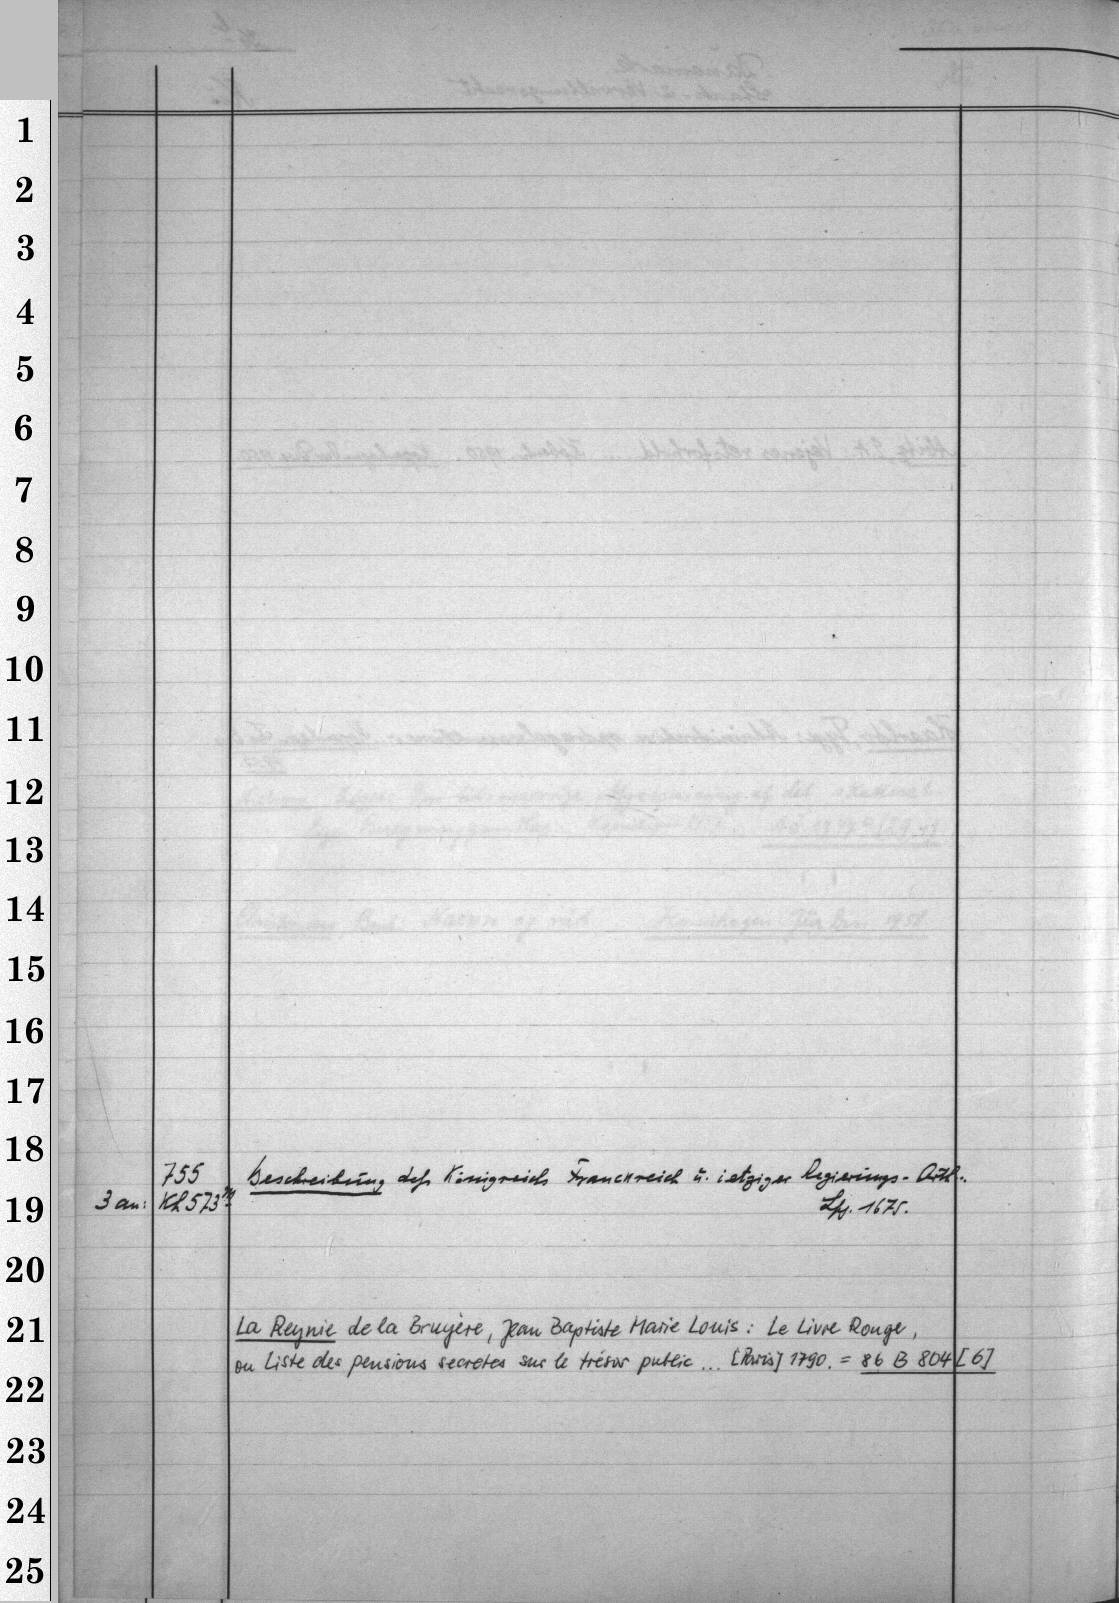 1
2
3
4
5
6
7
8
9
10
11
12
13
14
15
16
17
18
755 Beschreibung deß Königreichs Franckreich u. ietziger Regierungs-Arth.
19
3 an: Kh 573 Lpz. 1675.
20
21
La Reynie de la Bruyère, Jean Baptiste Marie Louis: Le Livre Rouge,
ou Liste des pensions secretes sur le trésor public ... [Paris] 1790. = 86 B 804 [6]
22
23
24
25